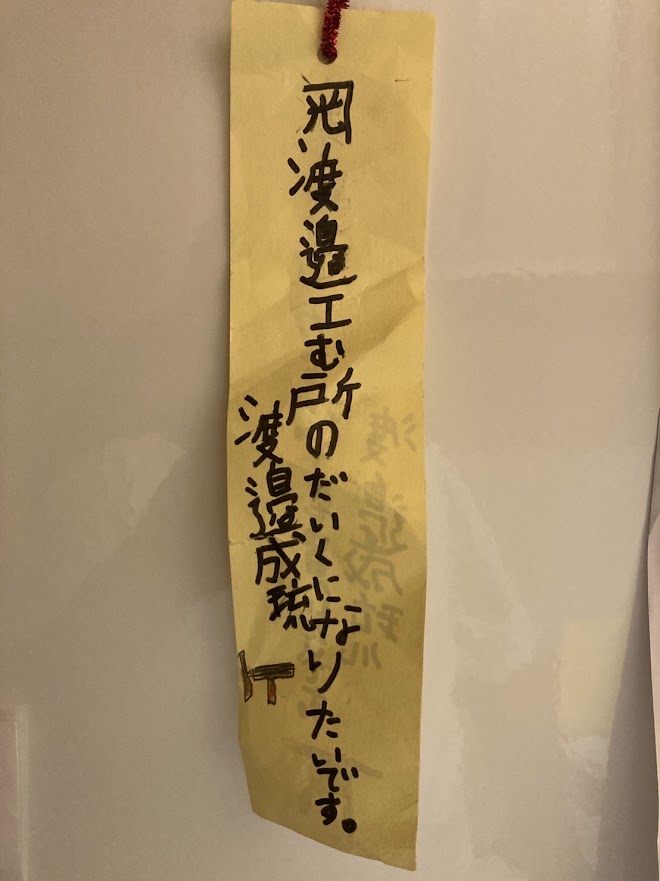 渡邉工む所のだいくになりたいです。
渡邉成琉